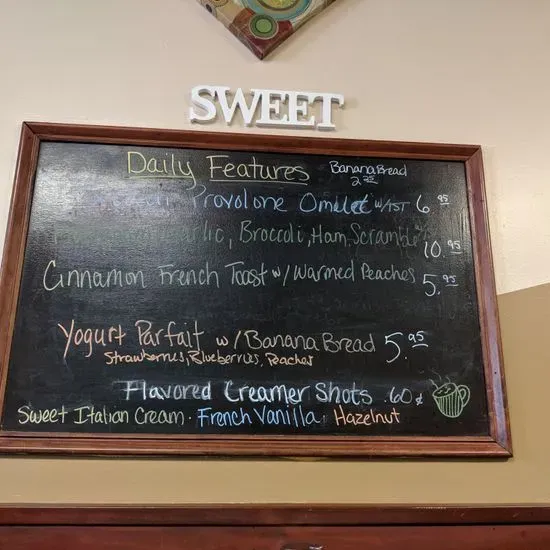 SWEET
Daily Features
Banana Bread
2.25
Provolone Omulet w/AST 6.95
Garlic, Broccoli, Ham, Scramble 10.95
Cinnamon French Toast w/ Warmed Peaches 5.95
Yogurt Parfait w/ Banana Bread 5.95
Strawberries, Blueberries, Peaches
Flavored Creamer Shots .60¢
Sweet Italian Cream · French Vanilla, Hazelnut